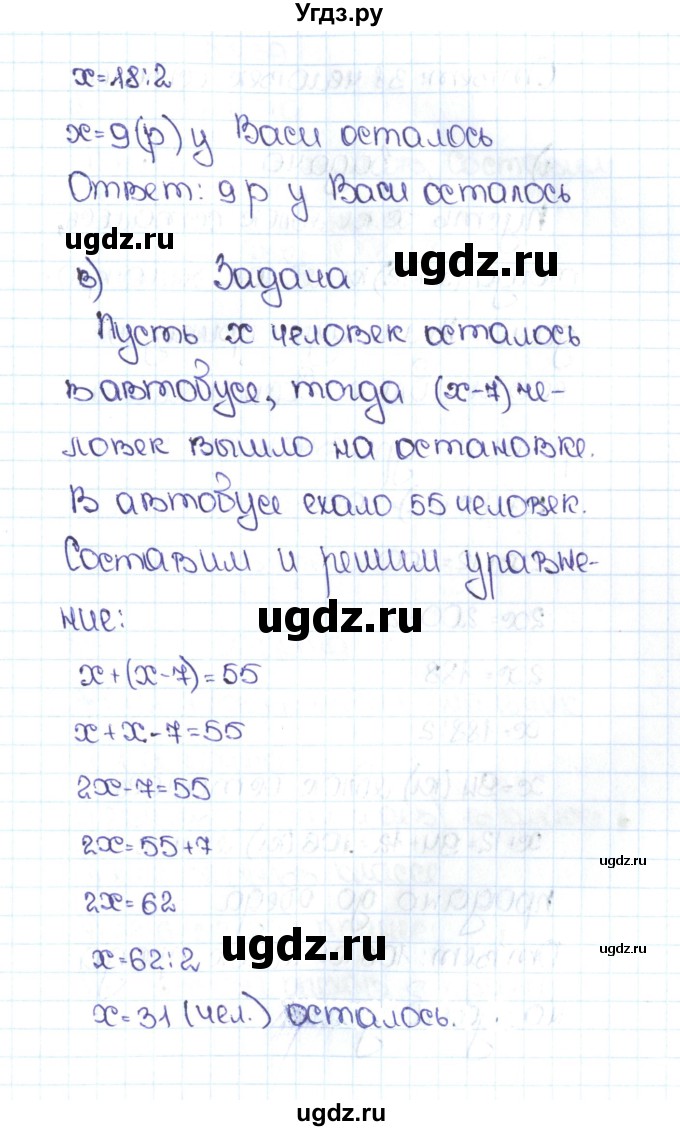 Угдз.ру
x=18:2
x=9(р) у Васи осталось
Ответ: 9 р у Васи осталось
ugdz.ru
ugdz.ru
в) Задача
Пусть x человек осталось
в автобусе, тогда (x-7) че-
ловек вышло на остановке.
В автобусе ехало 55 человек.
Составим и решим уравне-
ние:
ugdz.ru
x+(x-7)=55
x+x-7=55
2x-7=55
2x=55+7
ugdz.ru
2x=62
ugdz.ru
ugdz.ru
x=62:2
x=31 (чел.) осталось.
ugdz.ru